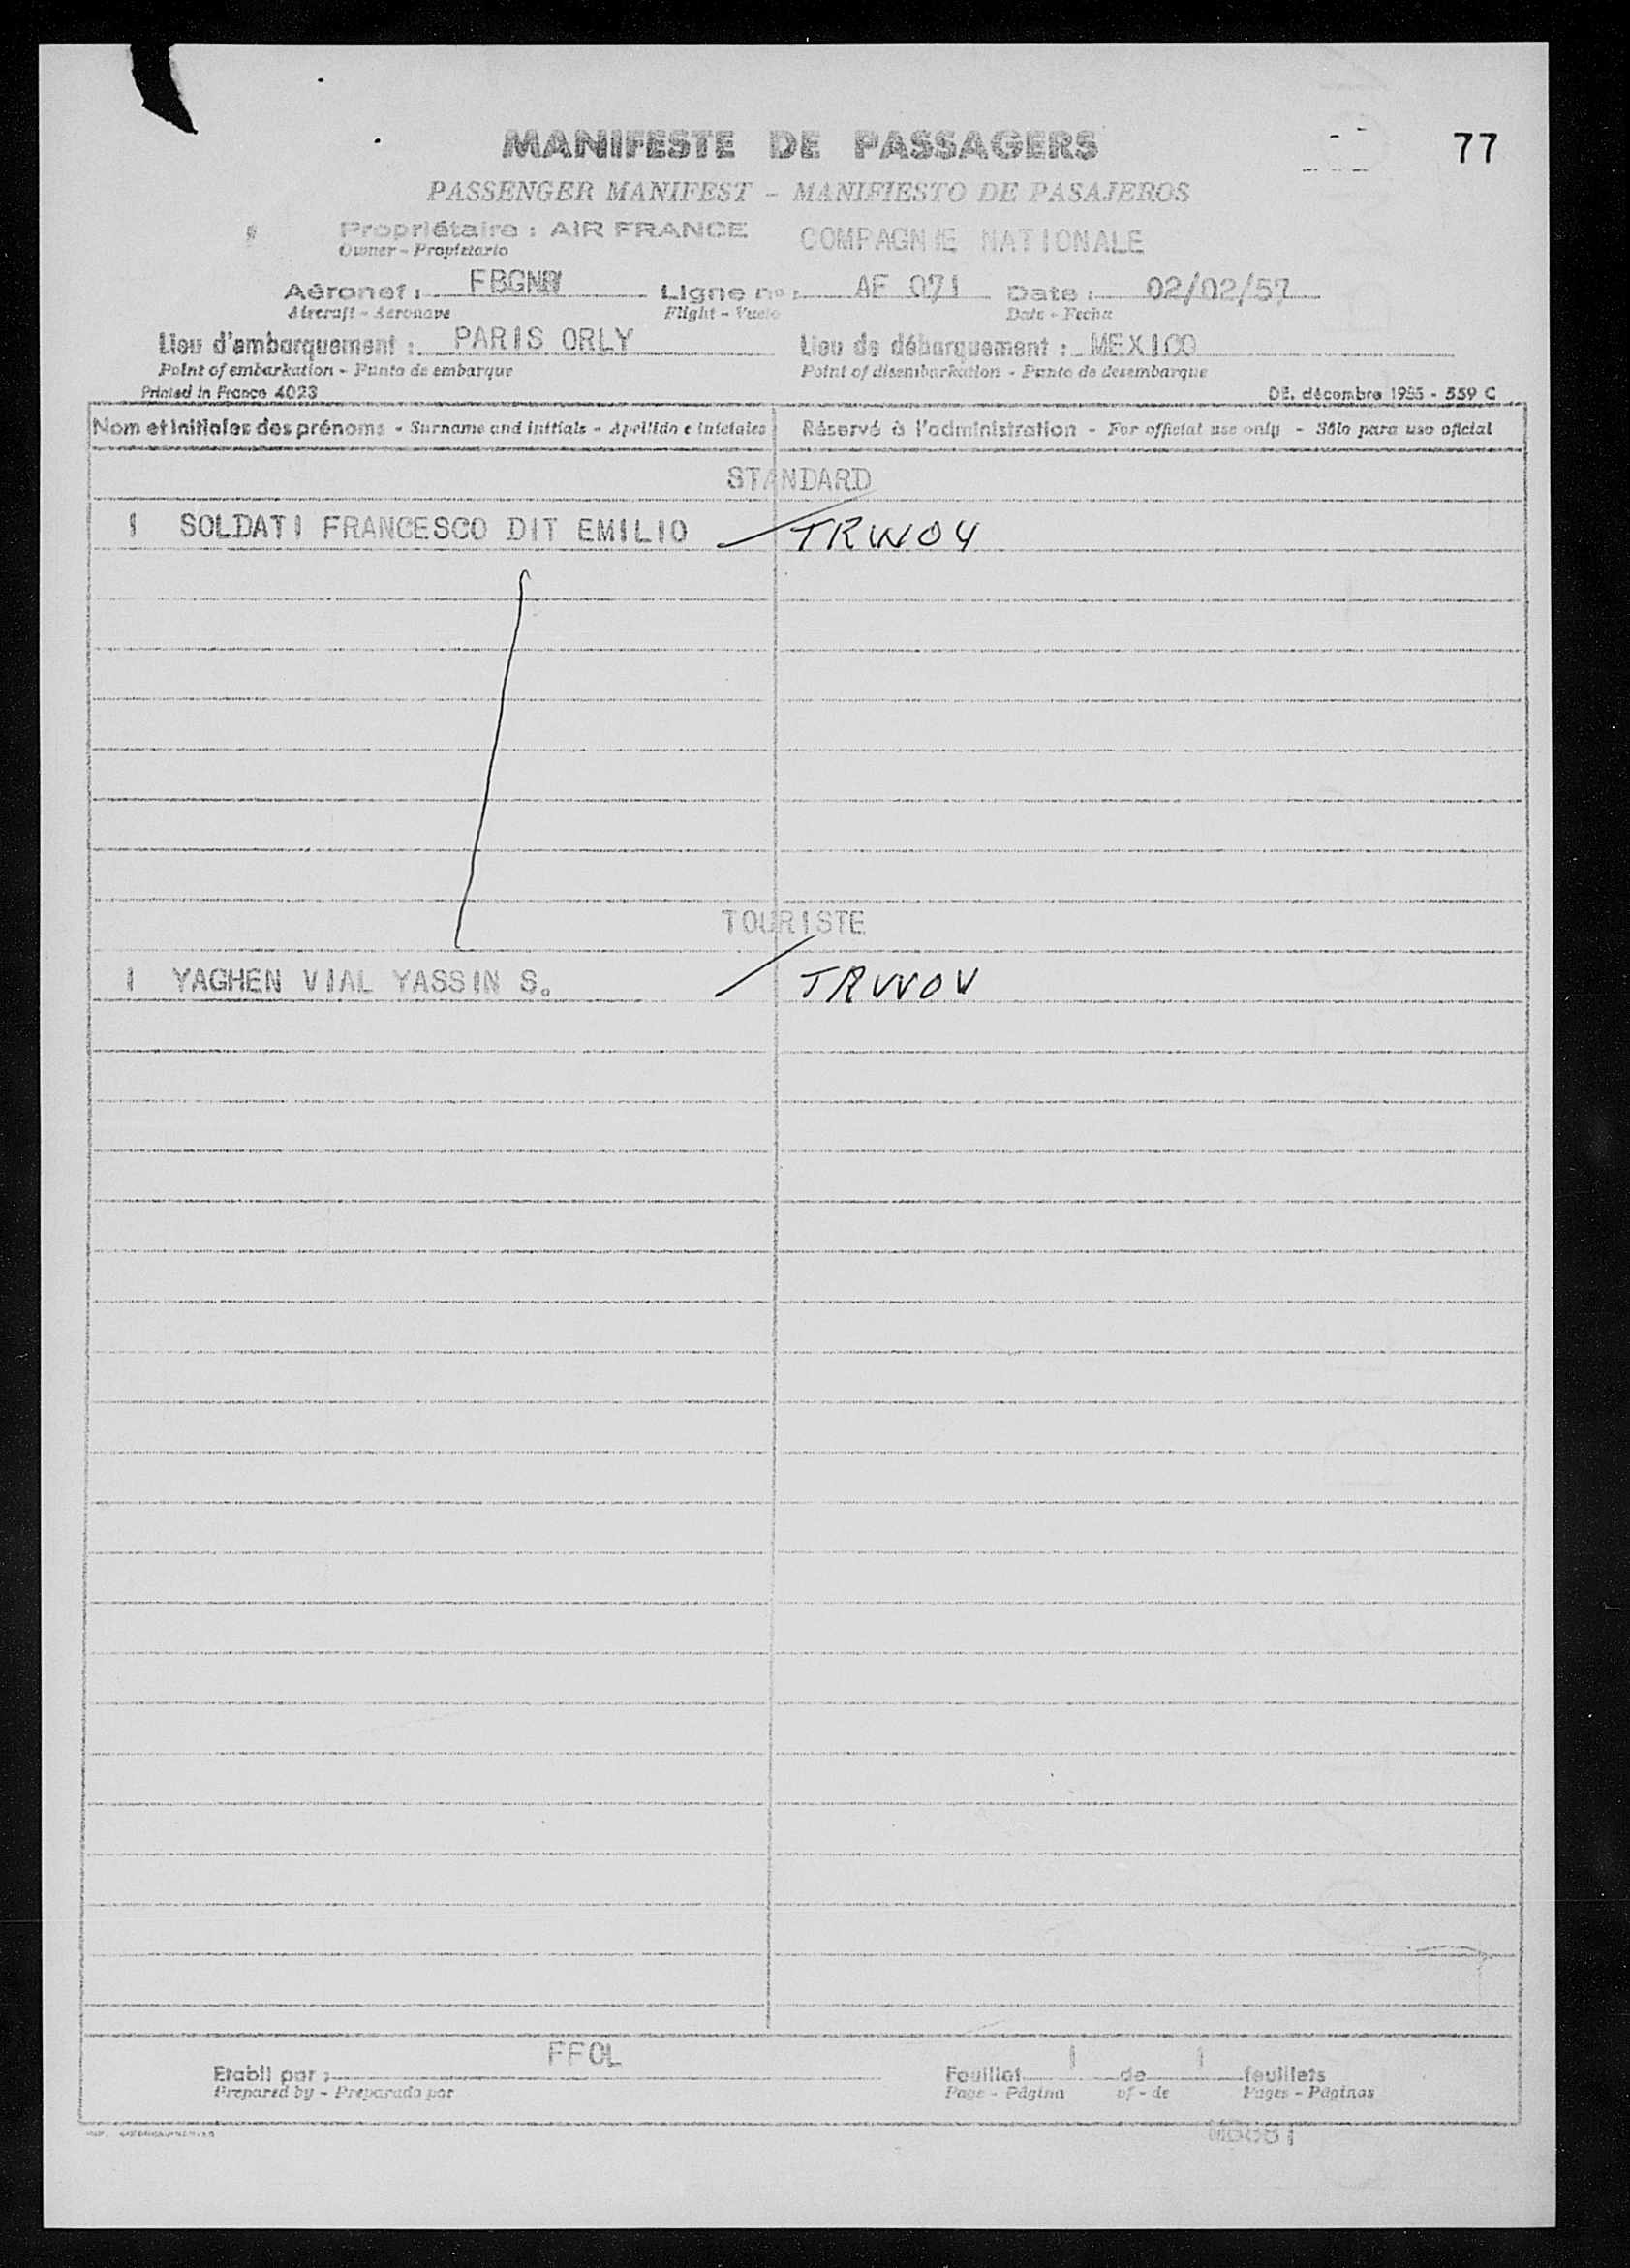 77
MANIFESTE DE PASSAGERS
PASSENGER MANIFEST - MANIFIESTO DE PASAJEROS
Propriétaire : AIR FRANCE COMPAGNIE NATIONALE
Owner - Propietario
Aéronef : Ligne no : AF 071 Date : 02/02/57
Aircraft - Aeronave Flight - Vuelo Date - Fecha
Lieu d'embarquement : PARIS ORLY Lieu de débarquement : MEXICO
Point of embarkation - Punto de embarque Point of disembarkation - Punto de desembarque
Printed in France 4023 DE. décembre 1955 - 559 C
Nom et initiales des prénoms - Surname and initials - Apellido e iniciales Réservé à l'administration - For official use only - Sólo para uso oficial
STANDARD
1 SOLDATI FRANCESCO DIT EMILIO TRWOV
TOURISTE
1 YAGHEN VIAL YASSIN S. TRWOV
FFCL
Etabli par : Feuillet 1 de 1 feuillets
Prepared by - Preparado por Page - Página of - de Pages - Páginas